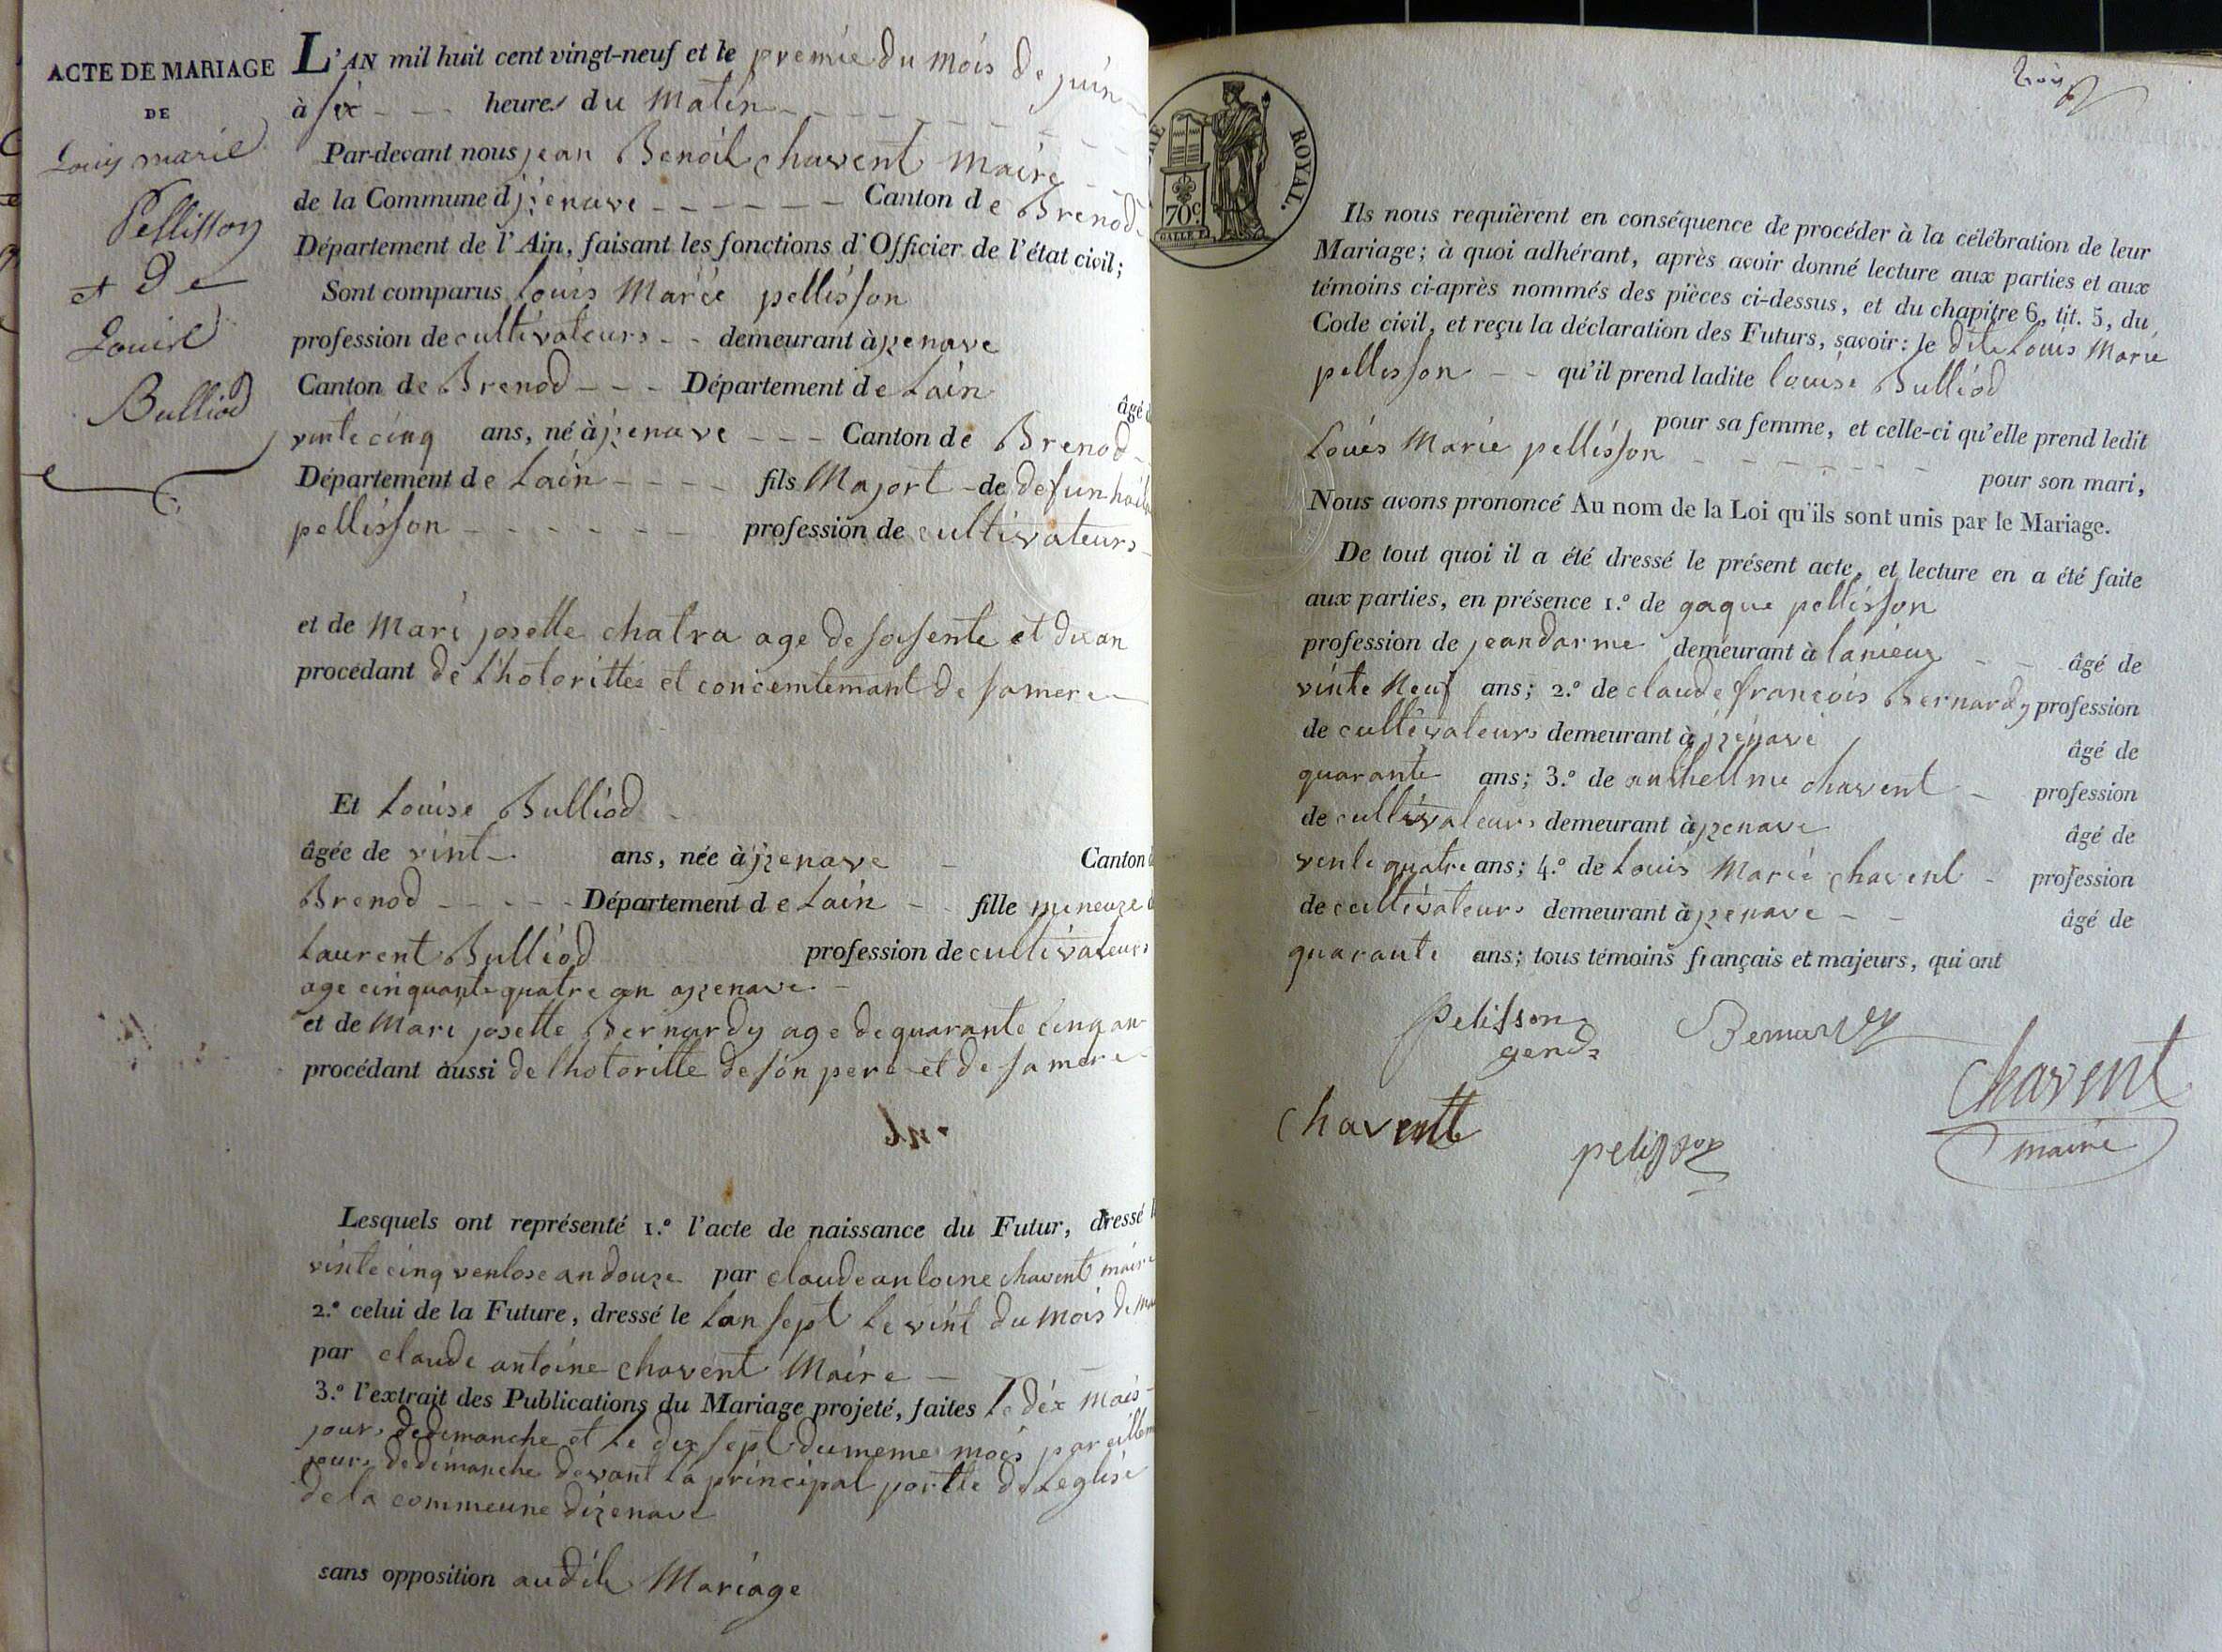 ACTE DE MARIAGE
DE
Louis marie
Pellisson
et De
Louise
Bulliod
L'AN mil huit cent vingt-neuf et le premie du mois de juin
à six heures du matin
Par-devant nous jean Benoit chavent maire
de la Commune d izenave Canton de Brenod
Département de l'Ain, faisant les fonctions d'Officier de l'état civil;
Sont comparus Louis Marie pellisson
profession de cultivateurs demeurant à izenave
Canton de Brenod Département de Lain âgé d
vinte cinq ans, né à izenave Canton de Brenod
Département de Lain fils Majort de defun
pellisson profession de cultivateurs
et de Mari josette chatra age de soisente et dix an
procédant de Lhotorittée et concemtemant de sa mere
Et Louise Bulliod
âgée de vint ans, née à izenave Canton d
Brenod Département de Lain fille mineuze d
Laurent Bulliod profession de cultivateurs
age cinquante quatre an a izenave
et de Mari josette Bernardy age de quarante cinq an
procédant aussi de lhotoritte de son pere et de sa mere
Lesquels ont représenté 1.º l'acte de naissance du Futur, dressé l
vinte cinq ventose an douze par claude antoine chavent maire
2.º celui de la Future, dressé le Lan sept Le vint du mois de
par claude antoine chavent Maire
3.º l'extrait des Publications du Mariage projeté, faites Le dix mais
jours dedimanche et Le dix sept du meme mois par eillem
jours dedimanche devant La principal portte de Leglise
de la commeune dizenave
sans opposition audite Mariage
ROYAL.
70 c.
Ils nous requièrent en conséquence de procéder à la célébration de leur
Mariage; à quoi adhérant, après avoir donné lecture aux parties et aux
témoins ci-après nommés des pièces ci-dessus, et du chapitre 6, tit. 5, du
Code civil, et reçu la déclaration des Futurs, savoir: le dite Louis Marie
pellisson qu'il prend ladite louise Bulliod
pour sa femme, et celle-ci qu'elle prend ledit
Louis Marie pellisson pour son mari,
Nous avons prononcé Au nom de la Loi qu'ils sont unis par le Mariage.
De tout quoi il a été dressé le présent acte, et lecture en a été faite
aux parties, en présence 1.º de gaque pellisson
profession de jeandarme demeurant à lanieux âgé de
vinte neuf ans; 2.º de claude francois Bernardy profession
de cultivateurs demeurant à izenave âgé de
quarante ans; 3.º de anthellme chavent profession
de cultivateurs demeurant à izenave âgé de
vente quatre ans; 4.º de Louis Marie chavent profession
de cultivateurs demeurant à izenave âgé de
quarante ans; tous témoins français et majeurs, qui ont
Pelisson Bernardy
gend
chavent
maire
chavent
pelisson